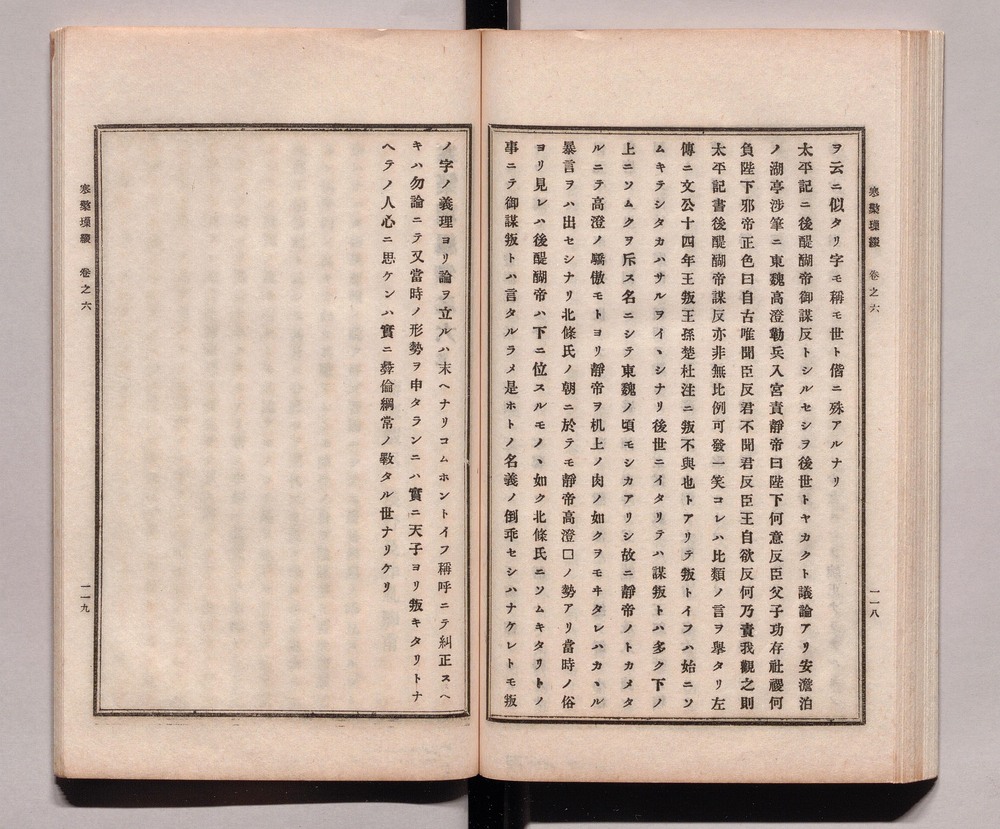 寒檠璅綴　卷之六
一一八
ヲ云ニ似タリ字モ稱モ世ト偕ニ殊アルナリ
太平記ニ後醍醐帝御謀反トシルセシヲ後世トヤカクト議論アリ安澹泊
ノ湖亭涉筆ニ東魏高澄勒兵入宮責靜帝曰陛下何意反臣父子功存社稷何
負陛下邪帝正色曰自古唯聞臣反君不聞君反臣王自欲反何乃責我觀之則
太平記書後醍醐帝謀反亦非無比例可發一笑コレハ比類ノ言ヲ舉タリ左
傳ニ文公十四年王叛王孫楚杜注ニ叛不與也トアリテ叛トイフハ始ニソ
ムキテシタカハサルヲイヽシナリ後世ニイタリテハ謀叛トハ多ク下ノ
上ニソムクヲ斥ス名ニシテ東魏ノ頃モシカアリシ故ニ靜帝ノトカメタ
ルニテ高澄ノ驕傲モトヨリ靜帝ヲ机上ノ肉ノ如クヲモヰタレハカヽル
暴言ヲハ出セシナリ北條氏ノ朝ニ於テモ靜帝高澄□ノ勢アリ當時ノ俗
ヨリ見レハ後醍醐帝ハ下ニ位スルモノヽ如ク北條氏ニソムキタリトノ
事ニテ御謀叛トハ言タルラメ是ホトノ名義ノ倒乖セシハナケレトモ叛
ノ字ノ義理ヨリ論ヲ立ルハ末ヘナリコムホントイフ稱呼ニテ糾正スヘ
キハ勿論ニテ又當時ノ形勢ヲ申タランニハ實ニ天子ヨリ叛キタリトナ
ヘテノ人心ニ思ケンハ實ニ彜倫綱常ノ斁タル世ナリケリ
寒檠璅綴　卷之六
一一九